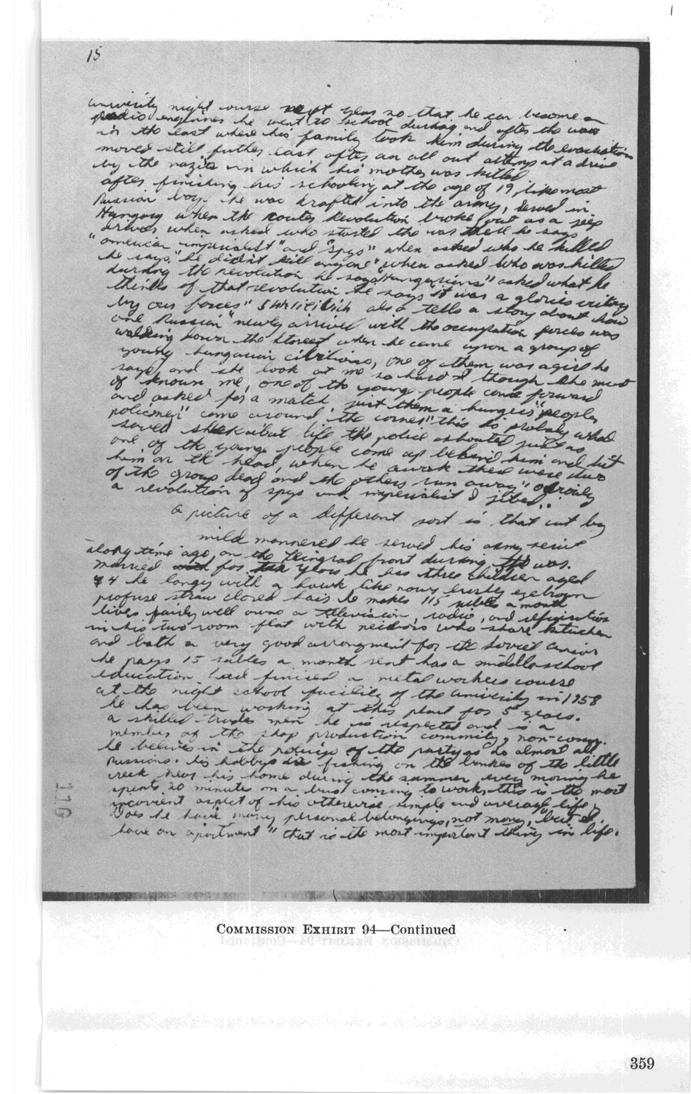 15
university night course next year so that he can become a
radio engineer he went to school during and after the war
in the east where his family took him during the evacuation
moved still futher east after an all out attemp at a drive
by the nazis in which his mother was killed
after finishing his schooling at the age of 19, like most
Russian boys he was drafted into the army, served in
Hungary when the Revolution broke out as a
when asked who started the war there he says
"omerican imperialist" and "spys" when asked who he killed
he says "he did'nt kill anyone" when asked who was killed
during the revolution he says "Hungarians" asked what he
thinks of that revolution he says it was a glories victory
by our forces" also tells a story about how
one Russian "newly arrived with the occupation forces was
walking down the street when he came upon a group of
young hungarian civilians, one of them was a girl he
says, and she look at me so hard I though she must
of known me, one of the young people came forward
and asked for a match just them a "peoples
policmen" came around the corner" this so probaly what
saved life the police shouted just as
one of the young people come up behind him and hit
him on the head, when he awok there were two
of the group dead and the others run away"
a revolution of spys and imperialist I
a picture of a different sort is that cut by
mild mannered he served his army
a long time ago, on the front during the war.
married for years he has three children aged
4 he longy with a hawk like nowy eyebrow
profuse straw hair he makes 115 rubles a month
lives fairly well owns a television, radio, and
in his two room flat with neibors who share kitchen
and bath a very good arrongment for the Soviet Union
he pays 15 rubles a month rent has a middle school
education, had finised a metal workers course
at the night school facility of the univicity in 1958
he has been working at this plant for 5 years.
a skilled trades men he is respected and is a
member of the shop production commity, non-comm.
he belives in the of the party as do almost all
Russions. his hobbys is fishing on the bankes of the little
creek near his home during the summer, every morning he
spents 20 minutes on a bus coming to work, this is the most
aspect of his otherwise simple and average life,
Does he have many personal belongings, not many, "but I.
have an apartment" that is the most important thing in life.
110
COMMISSION EXHIBIT 94—Continued
359